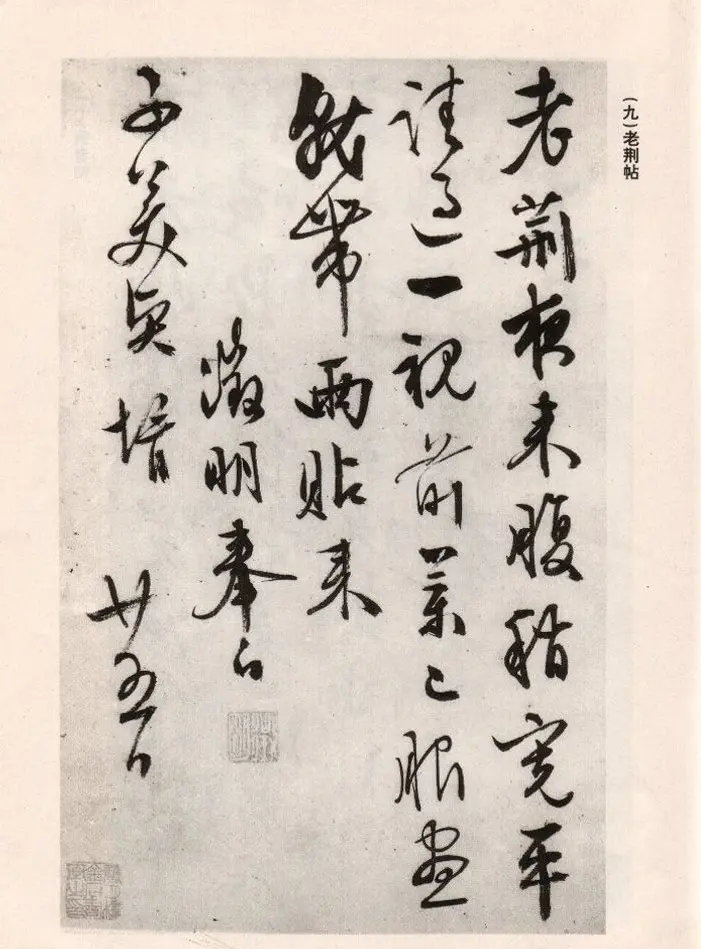 (九)老荆帖
老荆夜来腹稍宽平
请过一视前药已服尽
就带两贴来
徵明奉白
子美贤婿 廿五日